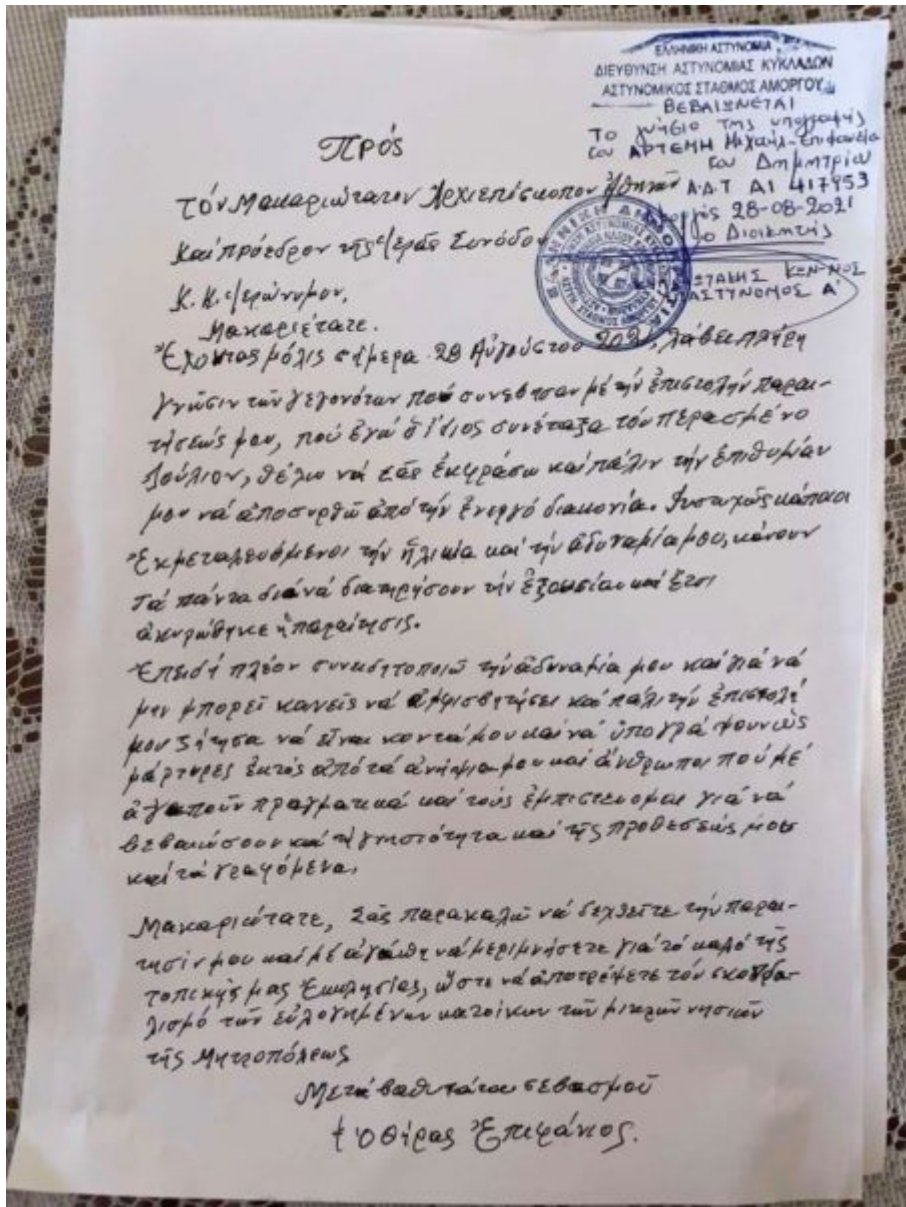 ΕΛΛΗΝΙΚΗ ΑΣΤΥΝΟΜΙΑ
ΔΙΕΥΘΥΝΣΗ ΑΣΤΥΝΟΜΙΑΣ ΚΥΚΛΑΔΩΝ
ΑΣΤΥΝΟΜΙΚΟΣ ΣΤΑΘΜΟΣ ΑΜΟΡΓΟΥ
ΒΕΒΑΙΩΝΕΤΑΙ
Το γνήσιο της υπογραφής
του ΑΡΤΕΜΗ Μιχαήλ-Επιφανεία
του Δημητρίου
Α.Δ.Τ ΑΙ 417953
28-08-2021
ο Διοικητής
ΚΩΝ-ΝΟΣ
ΑΣΤΥΝΟΜΟΣ Α'
Πρός
τόν Μακαριώτατον Ἀρχιεπίσκοπον Ἀθηνῶν
καί πρόεδρον τῆς Ἱερᾶς Συνόδου
κ.κ. Ἱερώνυμον.
Μακαριώτατε.
Ἔχοντας μόλις σήμερα 28 Αὐγούστου 2021, λάβει πλήρη
γνῶσιν τῶν γεγονότων πού συνέβησαν μέ τήν ἐπιστολήν παραι-
τήσεώς μου, πού ἐγώ ὁ ἴδιος συνέταξα τόν περασμένο
Ἰούλιον, θέλω νά Σᾶς ἐκφράσω καί πάλιν τήν ἐπιθυμίαν
μου νά ἀποσυρθῶ ἀπό τήν ἐνεργό διακονία. Δυστυχῶς κάποιοι
Ἐκμεταλευόμενοι τήν ἡλικία καί τήν ἀδυναμία μου, κάνουν
τά πάντα διά νά διατηρήσουν τήν ἐξουσίαν καί ἔτσι
ἀκυρώθηκε ἡ παραίτησις.
Ἐπειδή πλέον συνειδητοποιῶ τήν ἀδυναμία μου καί γιά νά
μην μπορεῖ κανείς νά ἀμφισβητήσει καί πάλι τήν ἐπιστολή
μου ζήτησα νά εἶναι κοντά μου καί νά ὑπογράψουν ὡς
μάρτυρες ἐκτός ἀπό τά ἀνήψια μου καί ἄνθρωποι πού μέ
ἀγαποῦν πραγματικά καί τούς ἐμπιστεύομαι γιά νά
βεβαιώσουν καί τή γνησιότητα καί τῆς προθέσεώς μου
καί τά γραφόμενα.
Μακαριώτατε, Σᾶς παρακαλῶ νά δεχθεῖτε τήν παραι-
τησίν μου καί μέ ἀγάπη νά μεριμνήσετε γιά τό καλό τῆς
τοπικῆς μας Ἐκκλησίας, ὥστε νά ἀποτρέψετε τόν σκανδα-
λισμό τῶν εὐλογημένων κατοίκων τῶν μικρῶν νησιῶν
τῆς Μητροπόλεως
Μετά βαθυτάτου σεβασμοῦ
† ὁ Θήρας Ἐπιφάνιος.